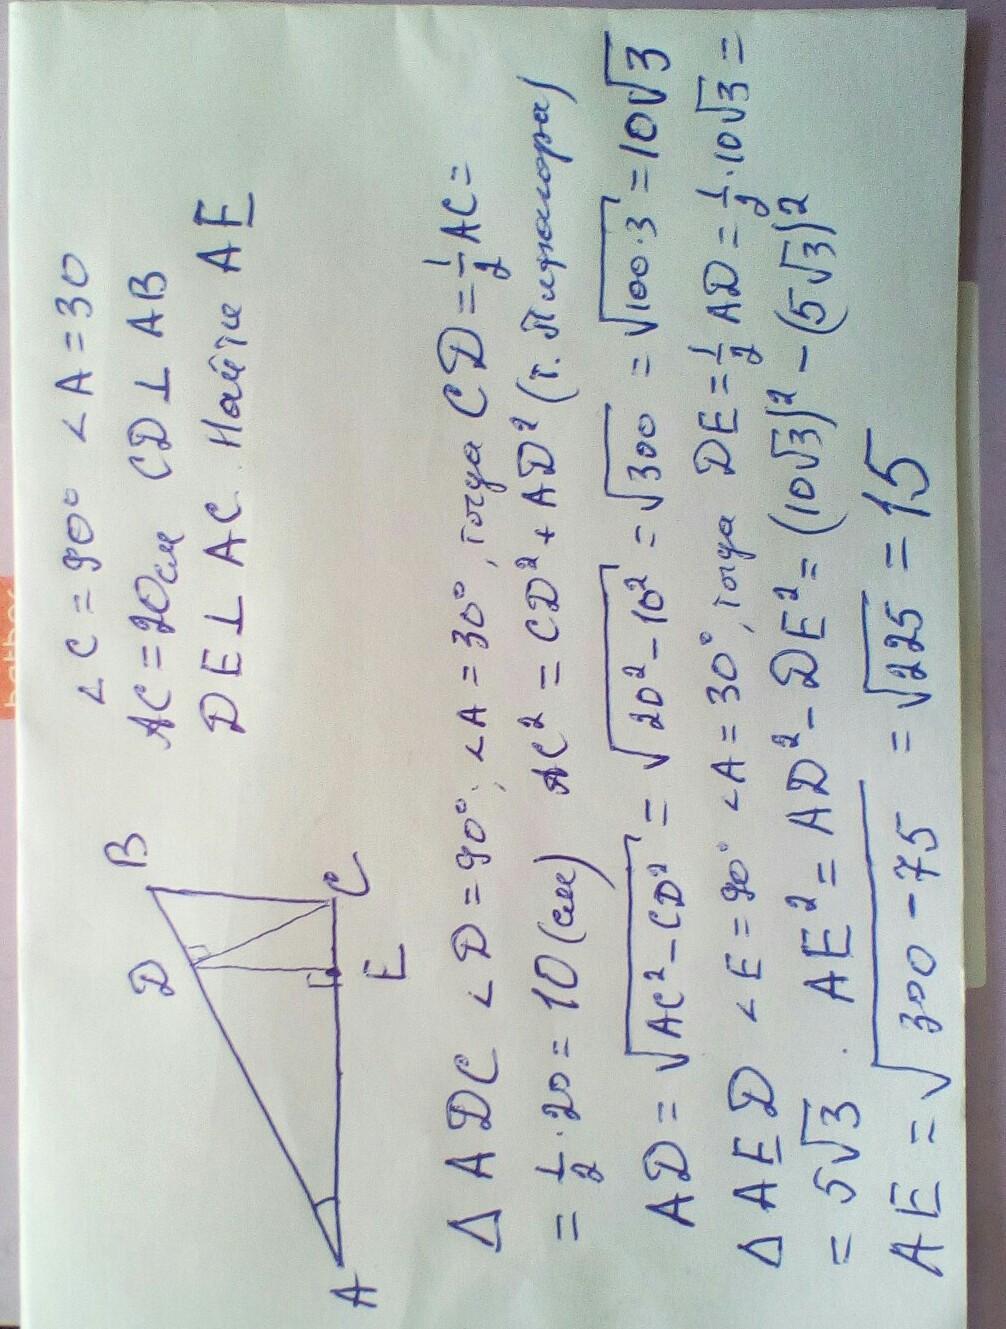 ∠C = 90° ∠A = 30
AC = 20см CD ⊥ AB
DE ⊥ AC. Найти AE
B
D
A
E
C
Δ ADC ∠D = 90°, ∠A = 30°, тогда CD = 1/2 AC =
= 1/2 · 20 = 10 (см) AC² = CD² + AD² (т. Пифагора)
AD = √AC² - CD² = √20² - 10² = √300 = √100·3 = 10√3
Δ AED ∠E = 90° ∠A = 30°, тогда DE = 1/2 AD = 1/2 · 10√3 =
= 5√3 . AE² = AD² - DE² = (10√3)² - (5√3)²
AE = √300 - 75 = √225 = 15